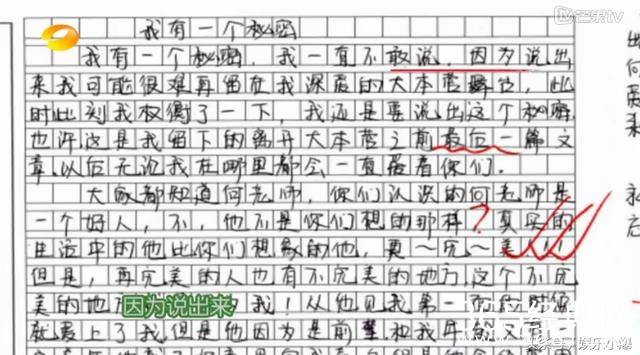 芒果tv
我有一个秘密
我有一个秘密，我一直不敢说，因为说出
来我可能很难再留在我深爱的大本营舞台，此
时此刻我权衡了一下，我还是要说出这个秘密
也许这是我留下的离开大本营之前最后一篇文
章，以后无论我在哪里都会一直爱着你们.
大家都知道何老师，你们认识的何老师是
一个好人，不，他不是你们想的那样？真实的
生活中的他比你们想象的他，更～完～美！！
但是，再完美的人也有不完美的地方，这个不完
美的地 我！从他见我第一
因为说出来
就爱上了我，但是他因为是前辈，和我
娱乐小爆